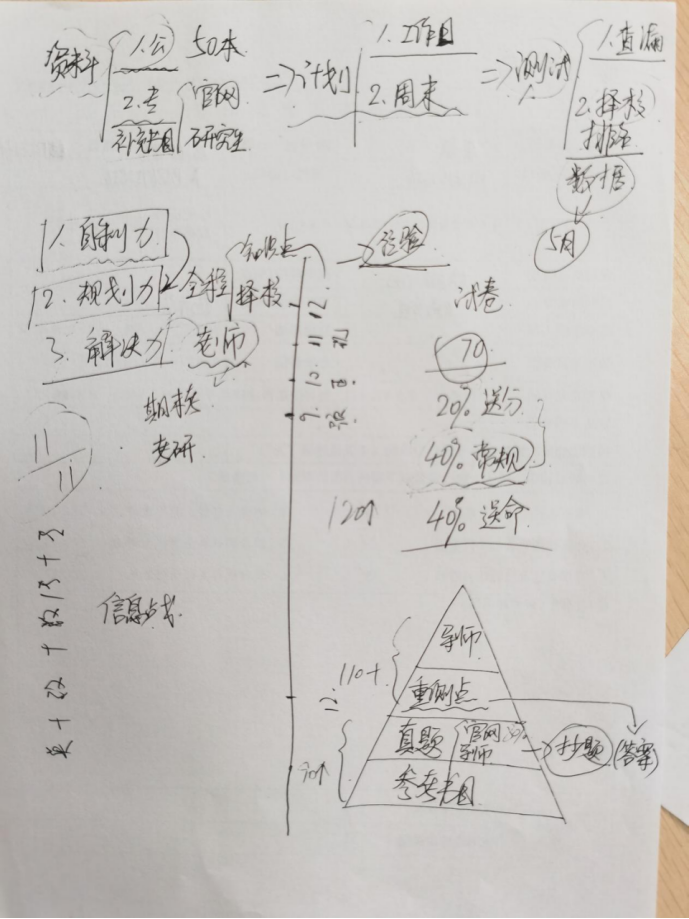 资料 1.公 50本 => 计划 1.工作日 => 测试 1.查漏
2.专 官网 2.周末 2.择校
补充书目 研究生 排名
数据
5月
1.自制力 知识点 经验
2.规划力 全程 择校 12. 试卷
3.解决力 老师 11 70
期末考 10.
考研 9. 强 20% 送分
40% 常规
11
11
120↑ 40% 送命
英+政+数/3+3
信息战
导师
110+ 重侧点
12.
真题 官网 导师 抄题 (答案)
90↑ 参考书目